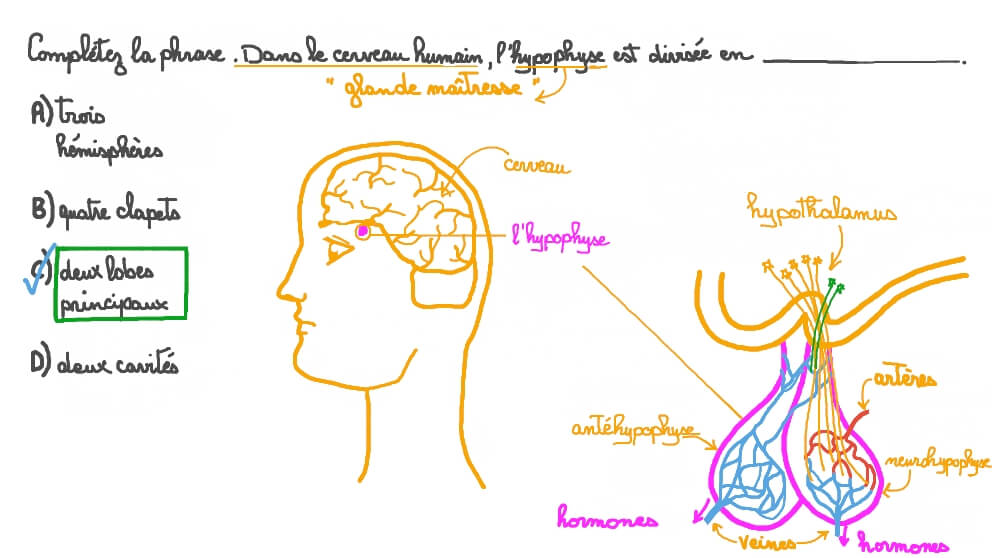 Complétez la phrase. Dans le cerveau humain, l'hypophyse est divisée en ____________.
"glande maîtresse"
A) trois
hémisphères
B) quatre clapets
C) deux lobes
principaux
D) deux cavités
cerveau
l'hypophyse
hypothalamus
artères
antéhypophyse
neurohypophyse
hormones
veines
hormones